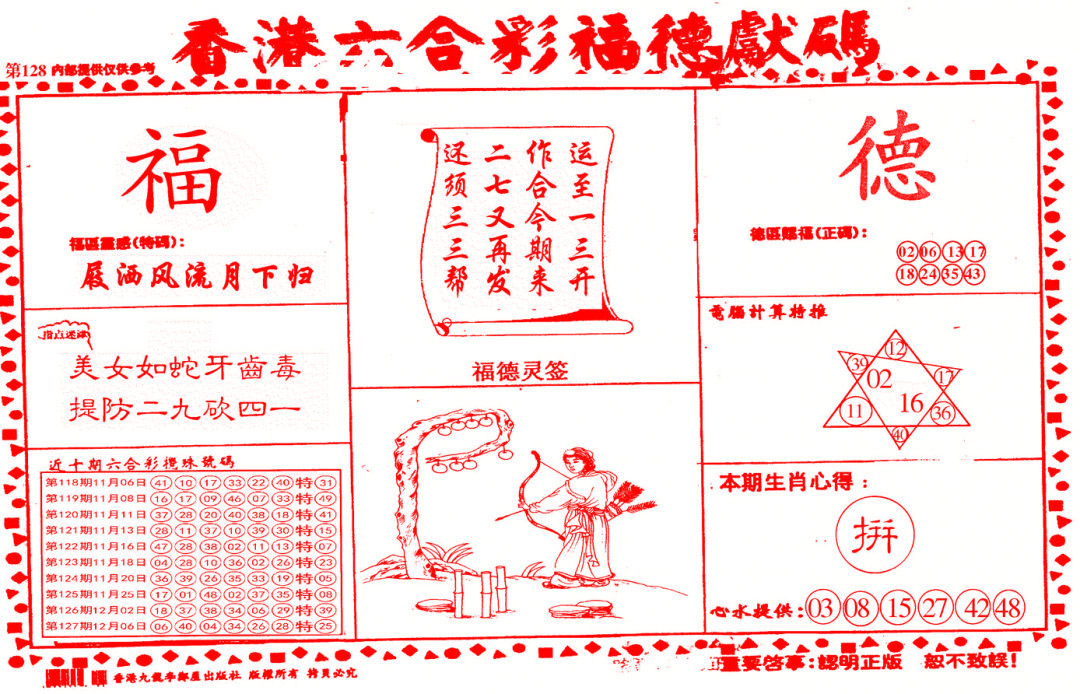 香港六合彩福德獻碼
第128 内部提供仅供参考
福
福區靈感(特碼):
屐洒风流月下归
指点迷津
美女如蛇牙齒毒
提防二九砍四一
近十期六合彩攪珠號碼
第118期11月06日 41 10 17 33 22 40 特 31
第119期11月08日 16 17 09 46 07 33 特 49
第120期11月11日 37 28 20 40 38 18 特 41
第121期11月13日 28 11 37 10 39 30 特 15
第122期11月16日 47 28 38 02 11 13 特 07
第123期11月18日 04 28 10 36 02 26 特 23
第124期11月20日 36 39 26 35 33 19 特 05
第125期11月25日 17 01 48 02 37 35 特 08
第126期12月02日 18 37 38 34 06 29 特 39
第127期12月06日 06 40 04 34 26 28 特 25
运至一三开
作合今期来
二七又再发
还须三三帮
福德灵签
德
德區賜福(正碼):
02 06 13 17
18 24 35 43
電腦計算特推
12
39 02 17
11 16 36
40
本期生肖心得:
拼
心水提供: 03 08 15 27 42 48
香港九龍李鄭屋出版社 版權所有 拷貝必究
重要啓事:認明正版 恕不致誤!